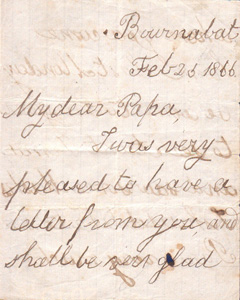 Bournabat
Feb 25 1866.
My dear Papa,
I was very
pleased to have a
letter from you and
shall be very glad